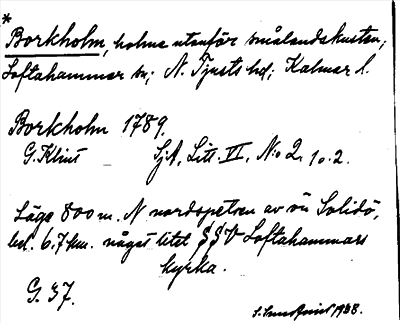 *
Borkholm, holme utanför smålandskusten,
Loftahammar sn; N. Tjusts hd; Kalmar l.
Borkholm 1789.
G. Klint SjA, Litt. VI, No 2. 10.2.
Läge 800 m. N nordspetsen av ön Solidö,
bel. 6.7 km. något litet SSV Loftahammars
kyrka.
G. 37.
1938.